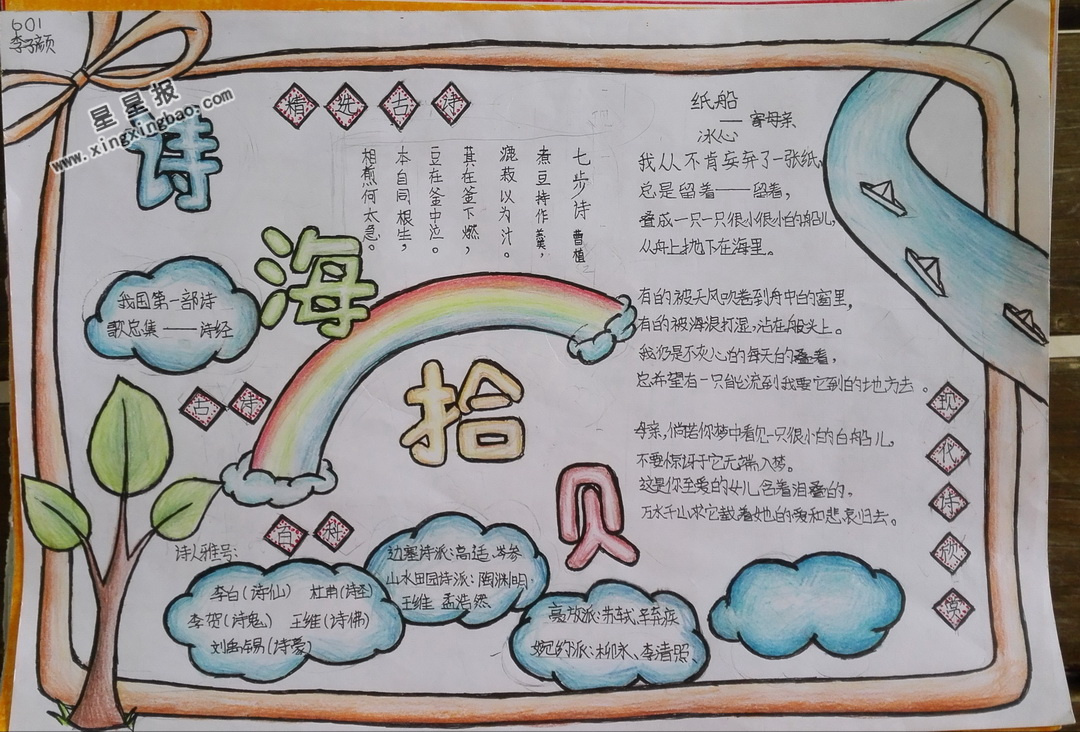 601
李子颜
星星报
www.xingxingbao.com
诗
海
拾
贝
精选古诗
七步诗 曹植
煮豆持作羹，
漉菽以为汁。
萁在釜下燃，
豆在釜中泣。
本自同根生，
相煎何太急。
我国第一部诗
歌总集——诗经
古诗
百科
诗人雅号：
李白（诗仙） 杜甫（诗圣）
李贺（诗鬼） 王维（诗佛）
刘禹锡（诗豪）
边塞诗派：高适、岑参
山水田园诗派：陶渊明、
王维 孟浩然
豪放派：苏轼、辛弃疾
婉约派：柳永、李清照、
纸船
——寄母亲
冰心
我从不肯妄弃了一张纸，
总是留着——留着，
叠成一只一只很小很小的船儿，
从舟上抛下在海里。
有的被天风吹卷到舟中的窗里，
有的被海浪打湿，沾在船头上。
我仍是不灰心的每天的叠着，
总希望有一只能流到我要它到的地方去。
母亲，倘若你梦中看见一只很小的白船儿，
不要惊讶于它无端入梦。
这是你至爱的女儿含着泪叠的，
万水千山求它载着她的爱和悲哀归去。
现代诗欣赏